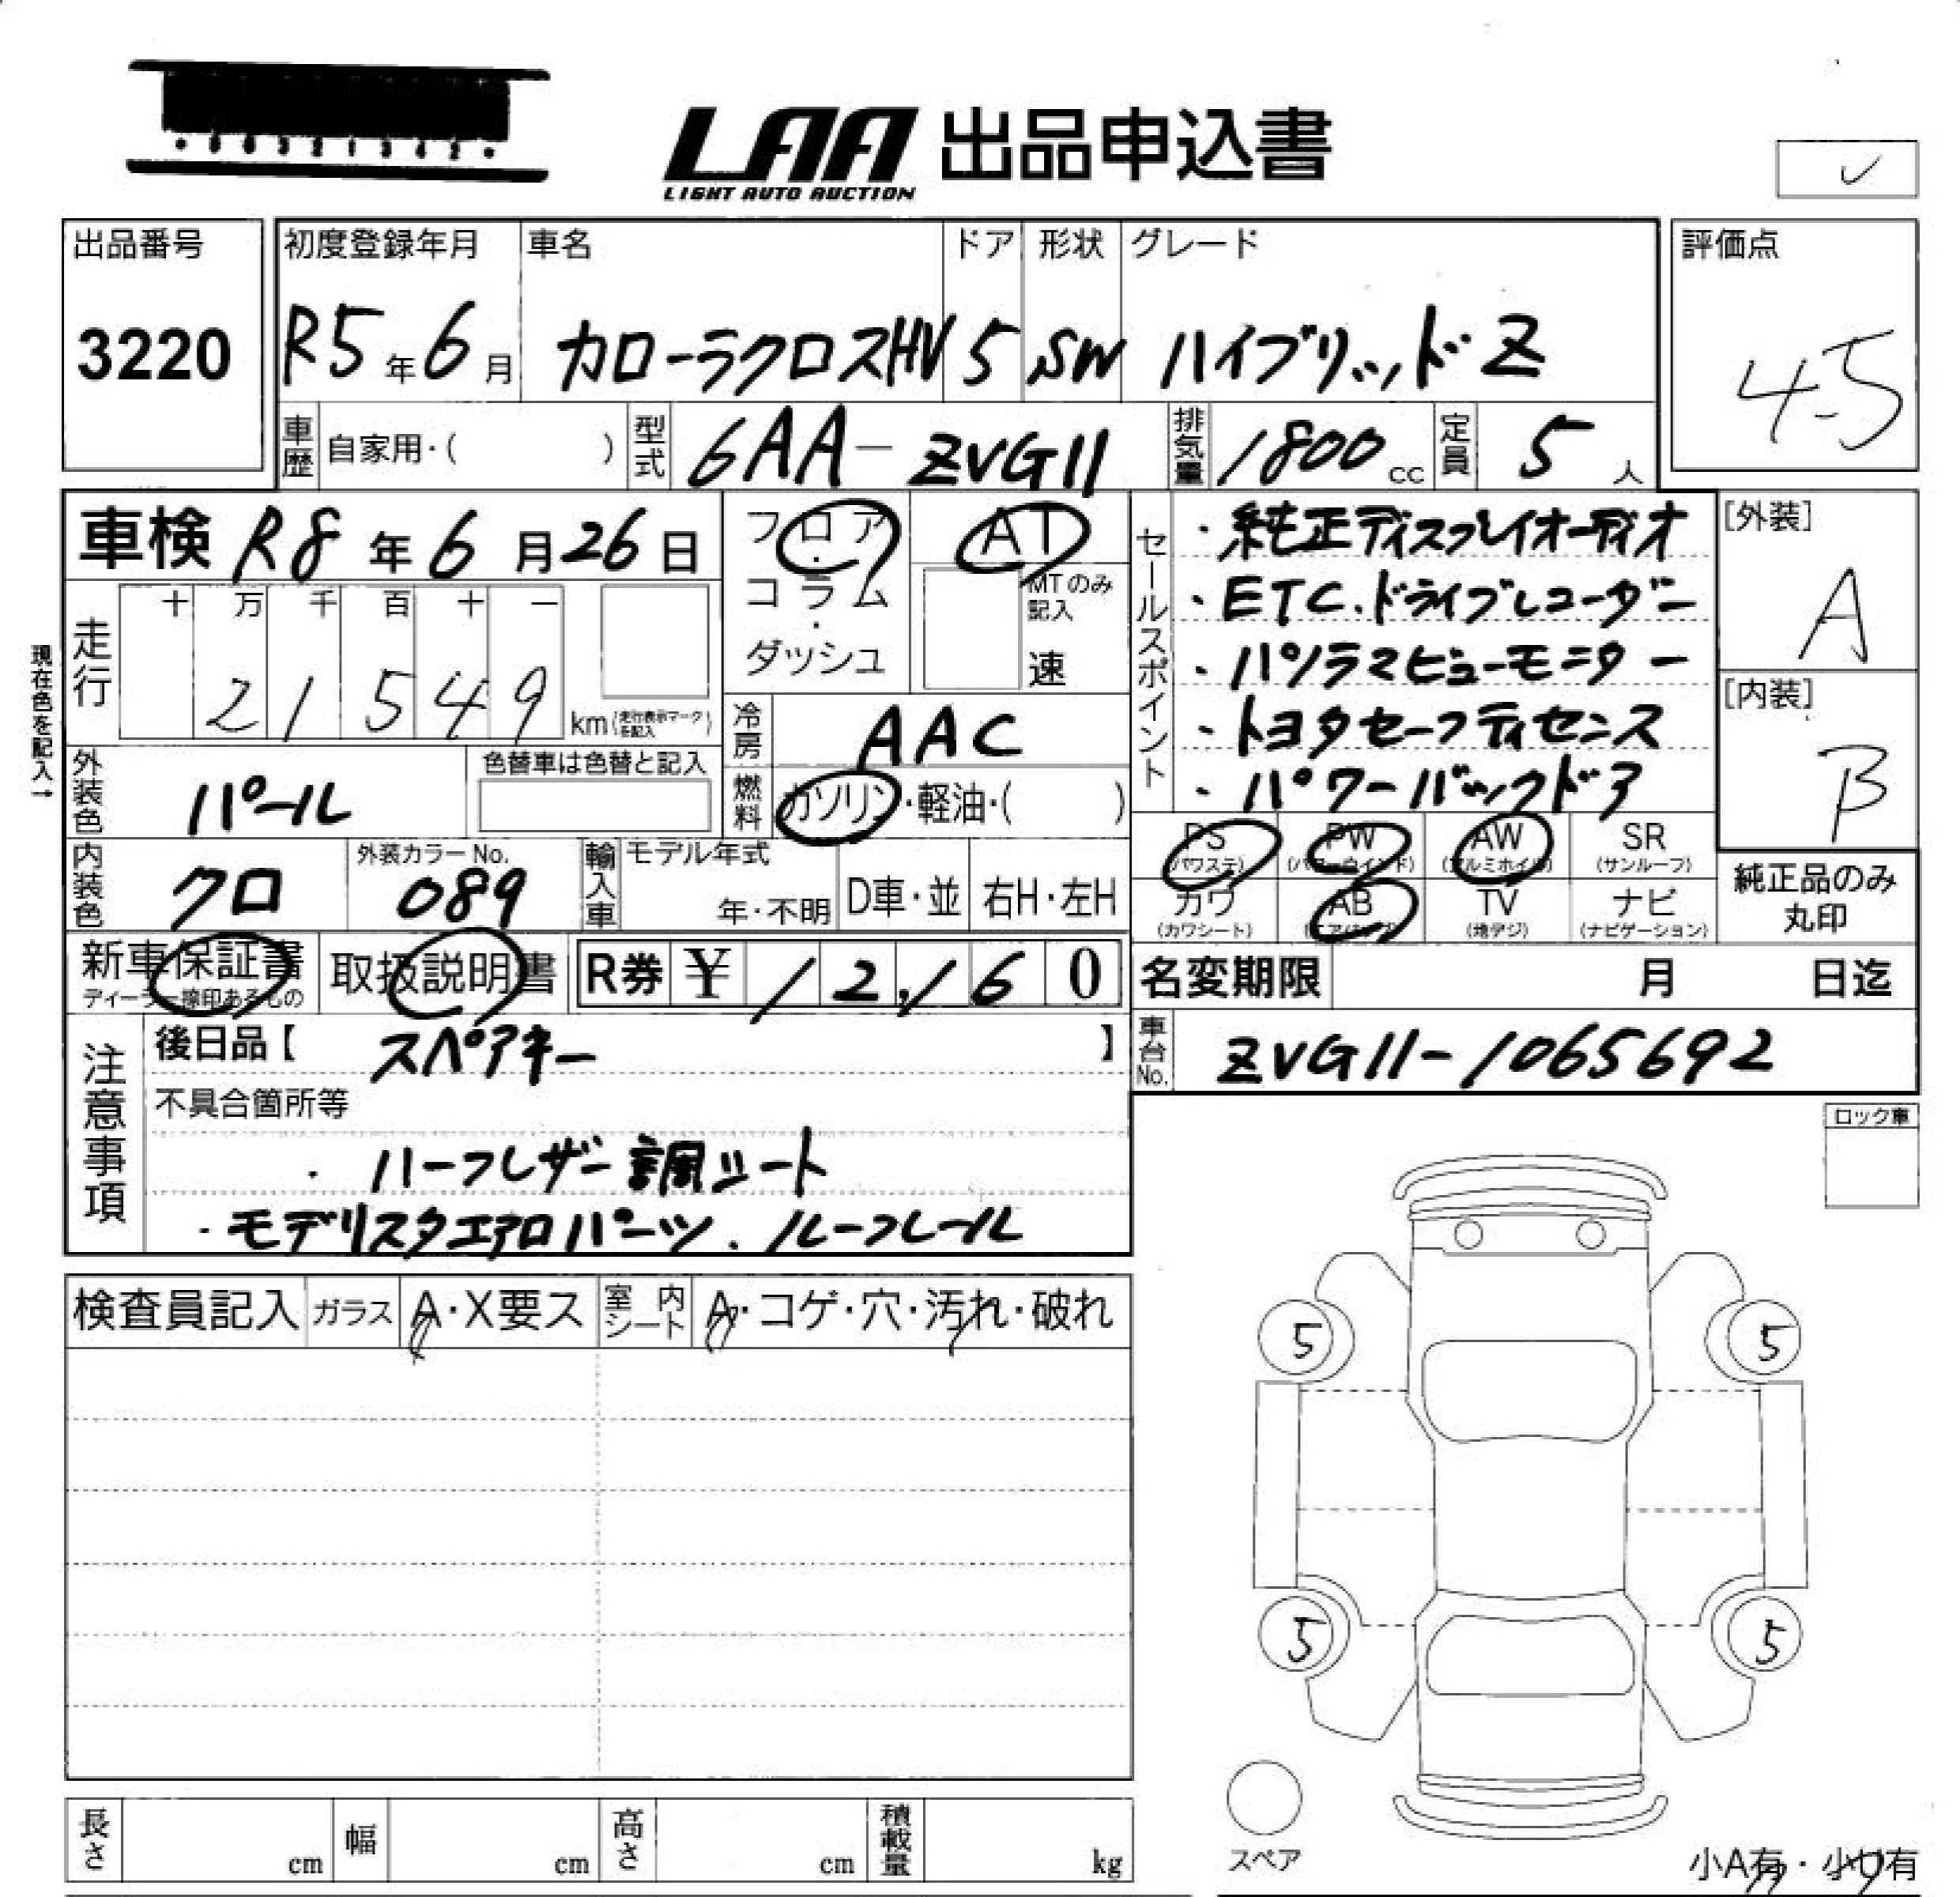 LAA 出品申込書
LIGHT AUTO AUCTION
出品番号
3220
初度登録年月
R5年6月
車名
カローラクロスHV
ドア
5
形状
SW
グレード
ハイブリッドZ
評価点
4.5
車歴 自家用・( )
型式 6AA-ZVG11
排気量 1800cc
定員 5人
車検 R8年6月26日
フロア・コラム・ダッシュ
AT
MTのみ記入
速
セールスポイント
・純正ディスプレイオーディオ
・ETC.ドライブレコーダー
・パノラマビューモニター
・トヨタセーフティセンス
・パワーバックドア
[外装]
A
[内装]
B
現在色を記入→
走行
十 万 千 百 十 一
2 1 5 4 9
km(走行表示マークを記入)
冷房 AAC
燃料 ガソリン・軽油・( )
外装色 パール
色替車は色替と記入
内装色 クロ
外装カラーNo.
089
輸入車
モデル年式
年・不明
D車・並
右H・左H
PS (パワステ)
PW (パワーウインド)
AW (アルミホイル)
SR (サンルーフ)
カワ (カワシート)
AB (エアバッグ)
TV (地デジ)
ナビ (ナビゲーション)
純正品のみ丸印
新車保証書
ディーラー捺印あるもの
取扱説明書
R券 ¥12,160
名変期限 月 日迄
車台No. ZVG11-1065692
注意事項
後日品【 スペアキー 】
不具合箇所等
・ハーフレザー調シート
・モデリスタエアロパーツ.ルーフレール
ロック車
検査員記入
ガラス A・X要ス
室内シート A・コゲ・穴・汚れ・破れ
5
5
5
5
スペア
長さ cm
幅 cm
高さ cm
積載量 kg
小A有・小U有